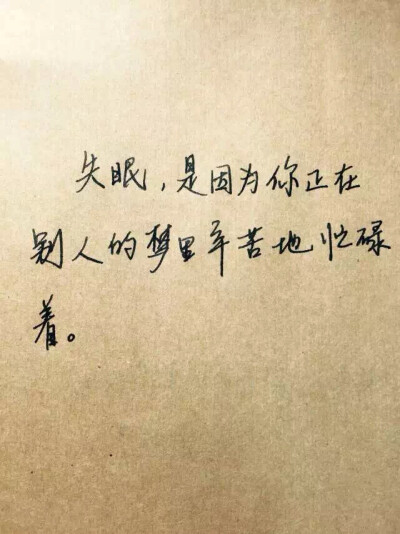 失眠，是因为你正在
别人的梦里辛苦地忙碌
着。